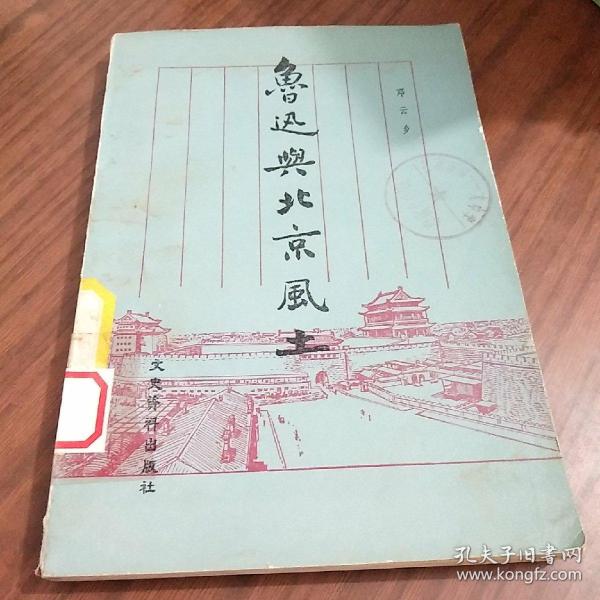 魯迅與北京風土
邓云乡
文史資料出版社
孔夫子旧书网
www.kongfz.com